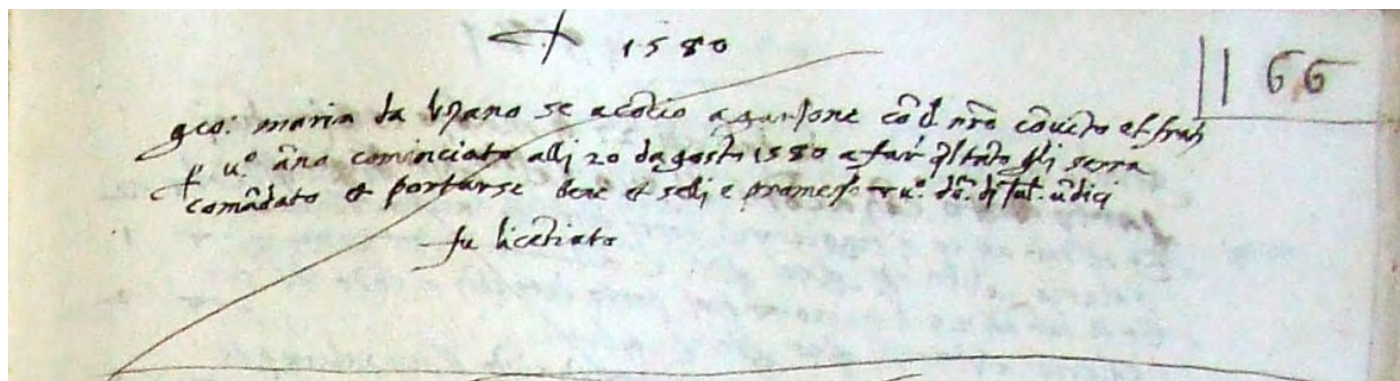 1580
166
gio: maria da vzano se acōcio a garzone cō d nrō cōuēto et frati
p uº āno cominciato alli 20 dagosto 1580 a far qltāto gli serra
comādato et portarse bene et selli e promesso uº
fu licētiato